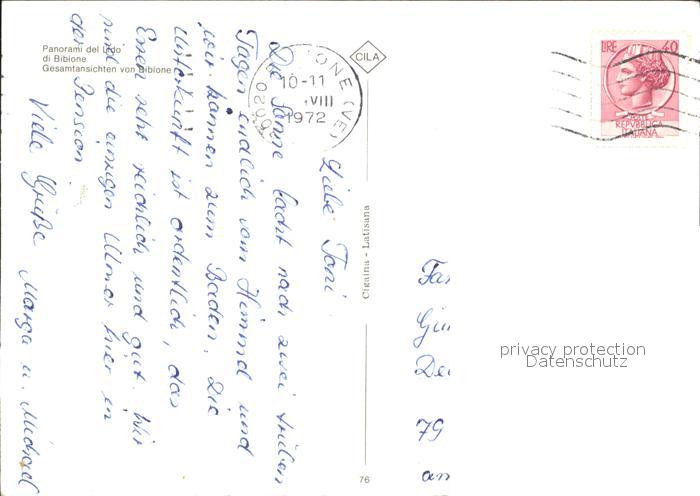 Panorami del Lido
di Bibione
Gesamtansichten von Bibione
CILA
BIBIONE (VE)
30020
10-11
VIII
1972
LIRE 40
POSTE
REPVBBLICA
ITALIANA
Liebe Toni
Die Sonne lacht nach zwei trüben
Tagen endlich vom Himmel und
wir kannen zum Baden. Die
Unterkunft ist ordentlich, das
Essen sehr reichlich und gut. Wir
sind die einzigen Ulmer hier in
der Pension
Viele Grüße Marga u. Michael
Cigaina - Latisana
76
Fa
Gi
De
79
am
privacy protection
Datenschutz